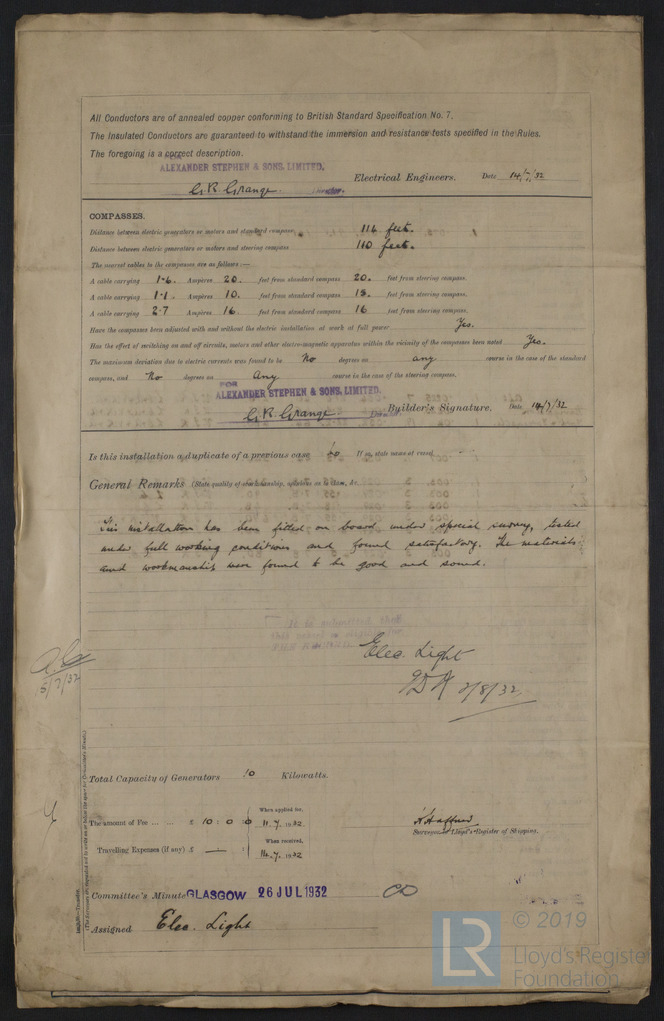 All Conductors are of annealed copper conforming to British Standard Specification No. 7.
The Insulated Conductors are guaranteed to withstand the immersion and resistance tests specified in the Rules.
The foregoing is a correct description.
FOR
ALEXANDER STEPHEN & SONS, LIMITED,
G.R. Grange. Electrical Engineers. Date 14/7/32
COMPASSES.
Distance between electric generators or motors and standard compass 114 feet.
Distance between electric generators or motors and steering compass 110 feet.
The nearest cables to the compasses are as follows:—
A cable carrying 1·6. Amperes 20. feet from standard compass 20. feet from steering compass.
A cable carrying 1·1. Amperes 10. feet from standard compass 15. feet from steering compass.
A cable carrying 2·7 Amperes 16. feet from standard compass 16 feet from steering compass.
Have the compasses been adjusted with and without the electric installation at work at full power Yes.
Has the effect of switching on and off circuits, motors and other electro-magnetic apparatus within the vicinity of the compasses been noted Yes.
The maximum deviation due to electric currents was found to be No degrees on any course in the case of the standard
compass, and No degrees on Any course in the case of the steering compass.
FOR
ALEXANDER STEPHEN & SONS, LIMITED.
G.R. Grange. Builder's Signature. Date 14/7/32
Is this installation a duplicate of a previous case No If so, state name of vessel
General Remarks (State quality of workmanship, opinions as to class, &c.
This installation has been fitted on board under special survey, tested
under full working conditions and found satisfactory. The materials
and workmanship were found to be good and sound.
It is submitted that
this vessel is eligible for
THE RECORD.
Elec. Light
2/8/32
5/7/32
Total Capacity of Generators 10 Kilowatts.
The amount of Fee ... £ 10 : 0 : 0
When applied for,
11.7.1932
Travelling Expenses (if any) £ —
When received,
14.7.1932
Surveyor to Lloyd's Register of Shipping.
Committee's Minute GLASGOW 26 JUL 1932
Assigned Elec. Light
LR
© 2019
Lloyd's Register
Foundation